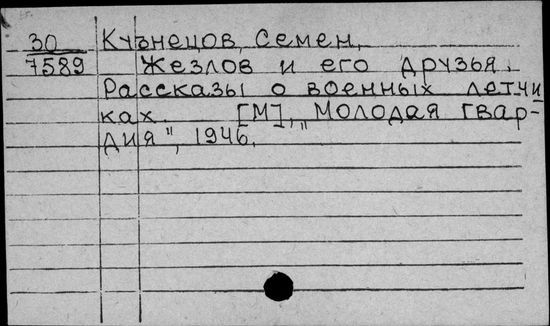 30 Кузнецов, Семен.
7589 Жезлов и его друзья.
Рассказы о военных летчи
ках. [М], "Молодая гвар-
дия", 1946.